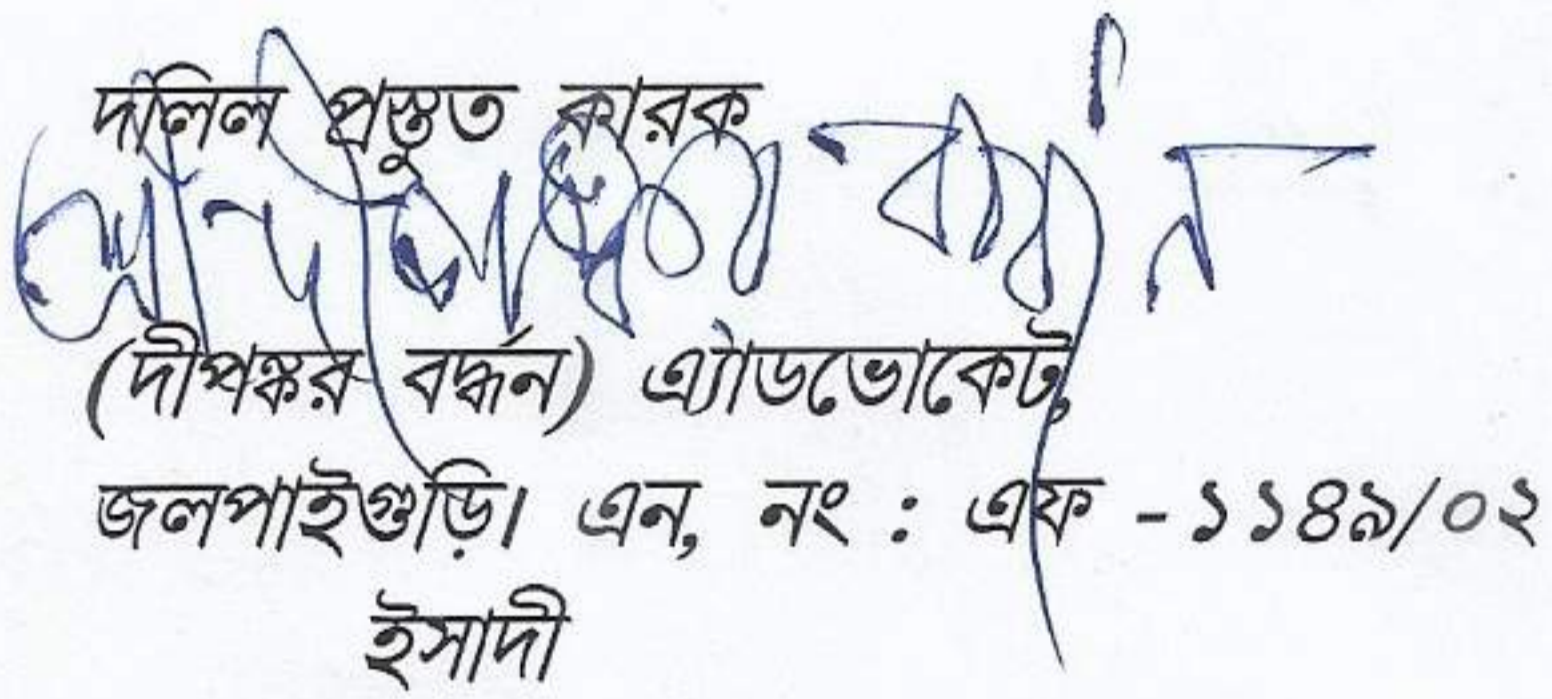 দলিল প্রস্তুত কারক
(দীপঙ্কর বর্দ্ধন) এ্যাডভোকেট,
জলপাইগুড়ি। এন, নং : এফ - ১১৪৯/০২
ইসাদী